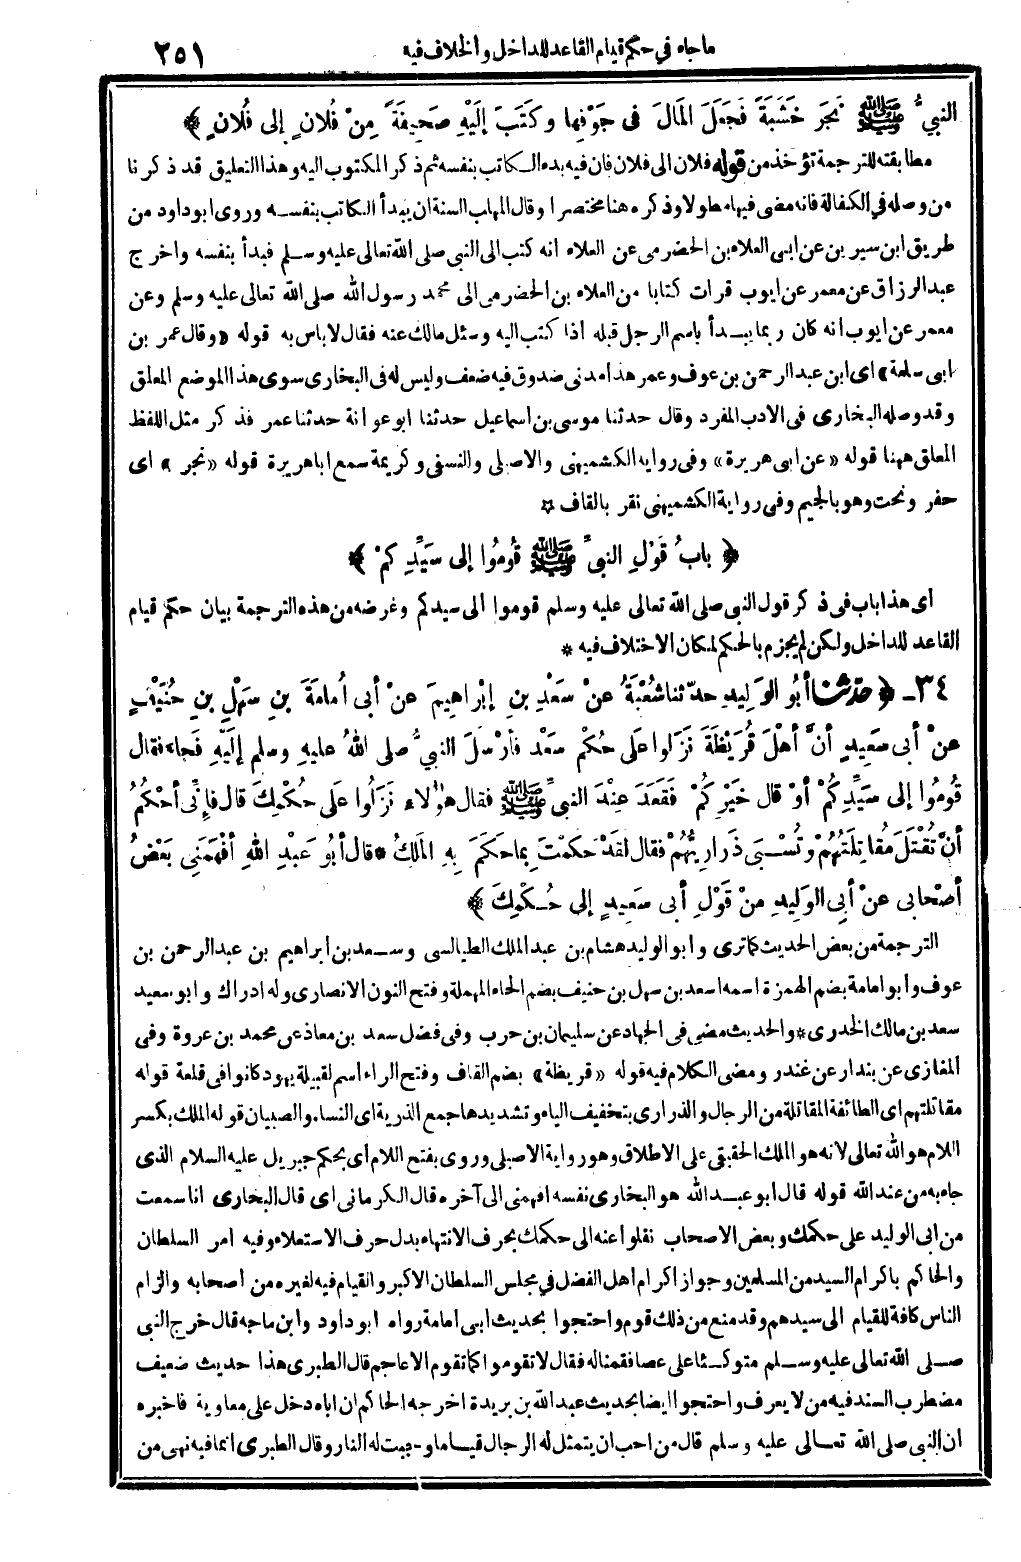 ما جاء في حكم قيام القاعد للداخل والخلاف فيه ٢٥١
النبيُّ ﷺ نَجَرَ خَشَبَةً فَجَعَلَ المَالَ فى جَوْفِها وكَتَبَ إلَيْهِ صَحِيفَةً مِنْ فُلانٍ إلى فُلانٍ ﴾
مطابقته للترجمة تؤخذ من قوله فلان الى فلان فان فيه بدء الكاتب بنفسه ثم ذكر المكتوب اليه وهذا التعليق قد ذكرنا
من وصله في الكفالة فانه مضى فيها مطولا وذكره هنا مختصرا وقال المهلب السنة ان يبدأ الكاتب بنفسه وروى ابو داود من
طريق ابن سيرين عن ابى العلاء بن الحضرمى عن العلاء انه كتب الى النبي صلى الله تعالى عليه وسلم فبدأ بنفسه واخرج
عبد الرزاق عن معمر عن ايوب قرات كتابا من العلاء بن الحضرمى الى محمد رسول الله صلى الله تعالى عليه وسلم وعن
معمر عن ايوب انه كان ربما يبدأ باسم الرجل قبله اذا كتب اليه وسئل مالك عنه فقال لا باس به قوله «وقال عمر بن
ابى سلمة» اى ابن عبد الرحمن بن عوف وعمر هذا مدنى صدوق فيه ضعف وليس له فى البخارى سوى هذا الموضع المعلق
وقد وصله البخارى فى الادب المفرد وقال حدثنا موسى بن اسماعيل حدثنا ابو عوانة حدثنا عمر فذكر مثل اللفظ
المعلق ههنا قوله «عن ابى هريرة» وفى رواية الكشميهنى والاصيلى والنسفى وكريمة سمع ابا هريرة قوله «نجر» اى
حفر ونحت وهو بالجيم وفى رواية الكشميهنى نقر بالقاف ☆
﴿ بابُ قَوْلِ النبيِّ ﷺ قُومُوا إلى سَيِّدِكمْ ﴾
اى هذا باب فى ذكر قول النبي صلى الله تعالى عليه وسلم قوموا الى سيدكم وغرضه من هذه الترجمة بيان حكم قيام
القاعد للداخل ولكن لم يجزم بالحكم لمكان الاختلاف فيه *
٣٤ـ ﴿ حدّثنا أبُو الوَلِيدِ حدّثنا شُعْبَةُ عنْ سَعْدِ بنِ إبْراهِيمَ عنْ أبى أُمامَةَ بنِ سَهْلِ بنِ حُنَيْفٍ
عنْ أبى سَعِيدٍ أنَّ أهْلَ قُرَيْظَةَ نَزَلوا على حُكْمِ سَعْدٍ فأرْسَلَ النبيُّ صلى اللهُ عليهِ وسلم إلَيْهِ فَجاءَ فقال
قُومُوا إلى سَيِّدِكُمْ أوْ قال خَيْرِكُمْ فَقَعَدَ عِنْدَ النبيِّ ﷺ فقال هؤُلاءِ نَزَلُوا على حُكْمِكَ قال فإنِّى أحْكُمُ
أنْ تُقْتَلَ مُقاتِلَتُهُمْ وتُسْبَى ذَرارِيُّهُمْ فقال لقَدْ حكَمْتَ بِما حَكَمَ بِهِ المَلِكُ * قال أبُو عَبْدِ اللهِ أفْهَمَنى بَعْضُ
أصْحابى عنْ أبى الوَلِيدِ مِنْ قَوْلِ أبى سَعِيدٍ إلى حُكْمِكَ ﴾
الترجمة من بعض الحديث كما ترى وابو الوليد هشام بن عبد الملك الطيالسى وسعد بن ابراهيم بن عبد الرحمن بن
عوف وابو امامة بضم الهمزة اسمه اسعد بن سهل بن حنيف بضم الحاء المهملة وفتح النون الانصارى وله ادراك وابو سعيد
سعد بن مالك الخدرى * والحديث مضى فى الجهاد عن سليمان بن حرب وفى فضل سعد بن معاذ عن محمد بن عروة وفى
المغازى عن بندار عن غندر ومضى الكلام فيه قوله «قريظة» بضم القاف وفتح الراء اسم لقبيلة يهود كانوا فى قلعة قوله
مقاتلتهم اى الطائفة المقاتلة من الرجال والذرارى بتخفيف الياء وتشديدها جمع الذرية اى النساء والصبيان قوله الملك بكسر
اللام هو الله تعالى لانه هو الملك الحقيقى على الاطلاق وهو رواية الاصيلى وروى بفتح اللام اى بحكم جبريل عليه السلام الذى
جاء به من عند الله قوله قال ابو عبد الله هو البخارى نفسه افهمنى الى آخره قال الكرمانى اى قال البخارى انا سمعت
من ابى الوليد على حكمك وبعض الاصحاب نقلوا عنه الى حكمك بحرف الانتهاء بدل حرف الاستعلاء وفيه امر السلطان
والحاكم باكرام السيد من المسلمين وجواز اكرام اهل الفضل في مجلس السلطان الاكبر والقيام فيه لغيره من اصحابه والزام
الناس كافة للقيام الى سيدهم وقد منع من ذلك قوم واحتجوا بحديث ابى امامة رواه ابو داود وابن ماجه قال خرج النبى
صلى الله تعالى عليه وسلم متوكئا على عصا فقمنا له فقال لا تقوموا كما تقوم الاعاجم قال الطبرى هذا حديث ضعيف
مضطرب السند فيه من لا يعرف واحتجوا ايضا بحديث عبد الله بن بريدة اخرجه الحاكم ان اباه دخل على معاوية فاخبره
ان النبى صلى الله تعالى عليه وسلم قال من احب ان يتمثل له الرجال قياما وجبت له النار وقال الطبرى انما فيه نهى من